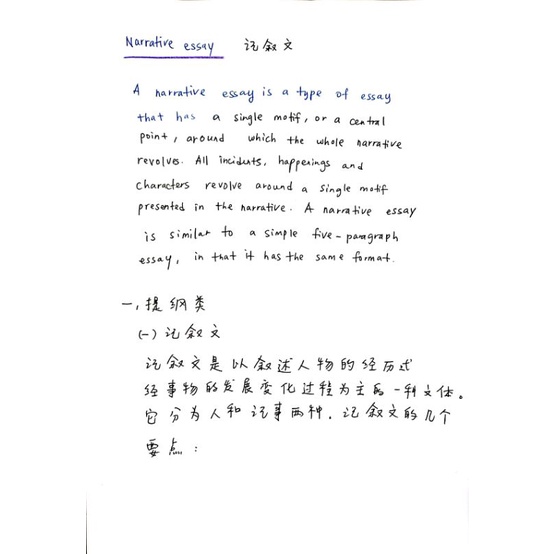 Narrative essay 记叙文
A narrative essay is a type of essay
that has a single motif, or a central
point, around which the whole narrative
revolves. All incidents, happenings and
characters revolve around a single motif
presented in the narrative. A narrative essay
is similar to a simple five-paragraph
essay, in that it has the same format.
一, 提纲类
(一) 记叙文
记叙文是以叙述人物的经历式
经事物的发展变化过程为主的一种文体。
它分为人和记事两种. 记叙文的几个
要点: